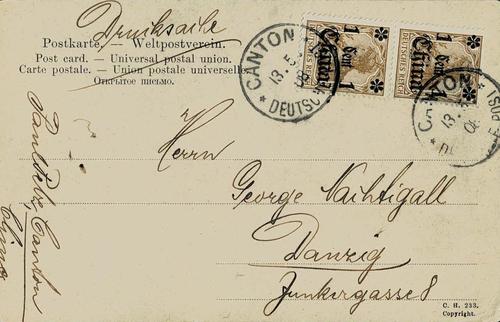 Drucksache
Postkarte. — Weltpostverein.
Post card. — Universal postal union.
Carte postale. — Union postale universelle.
Открытое письмо.
CANTON
13.5.
DEUTSC
1 cent 1
China
1 cent 1
China
CANTON
13.
Herrn
George Nachtigall
Danzig
Junkergasse 8
Canton
China
C. H. 233.
Copyright.